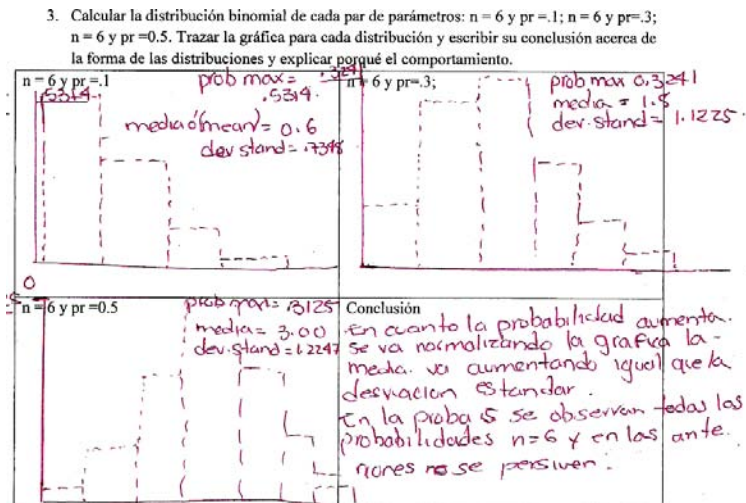 3. Calcular la distribución binomial de cada par de parámetros: n = 6 y pr =.1; n = 6 y pr=.3;
n = 6 y pr =0.5. Trazar la gráfica para cada distribución y escribir su conclusión acerca de
la forma de las distribuciones y explicar porqué el comportamiento.
n = 6 y pr =.1
prob max =
.5314.
.5314.
media ó(mean) = 0.6
dev stand= .7348
0
.3241
n = 6 y pr=.3;
prob max 0,3241
media = 1.8
dev. stand = 1.1225
n = 6 y pr =0.5
prob max= .3125
media= 3.00
dev.stand = 1.2247
Conclusión
En cuanto la probabilidad aumenta.
se va normalizando la grafica la -
media va aumentando igual que la
desviacion estandar.
En la proba .5 se observan todas las
probabilidades n=6 y en las ante.
riores no se persiven.